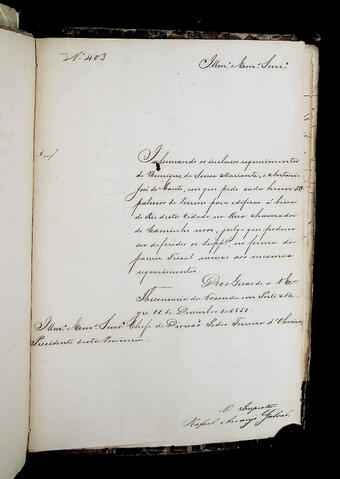 Nº 403
Illmº. e Exmº. Snrº.
Informando os inclusos requerimentos
de Henrique de Souza Mariante, e Antonio
José do Couto, em que pede cada hum 50
palmos de terreno para edificar á beira
do Rio desta Cidade na Rua chamada
do Caminho novo, julgo que podem
ser deferidos os Suppes. na forma do
parecer Fiscal annexo aos mesmos
requerimentos.
Deos Guarde a V Exa.
Thesouraria da Fazenda em Porto Ale-
gre 11 de Dezembro de 1851.
Illmº. Exmº. Snrº. Chefe de Divisão Pedro Ferreira d'Oliveira,
Presidente desta Provincia.
O Inspector
Rafael Araujo